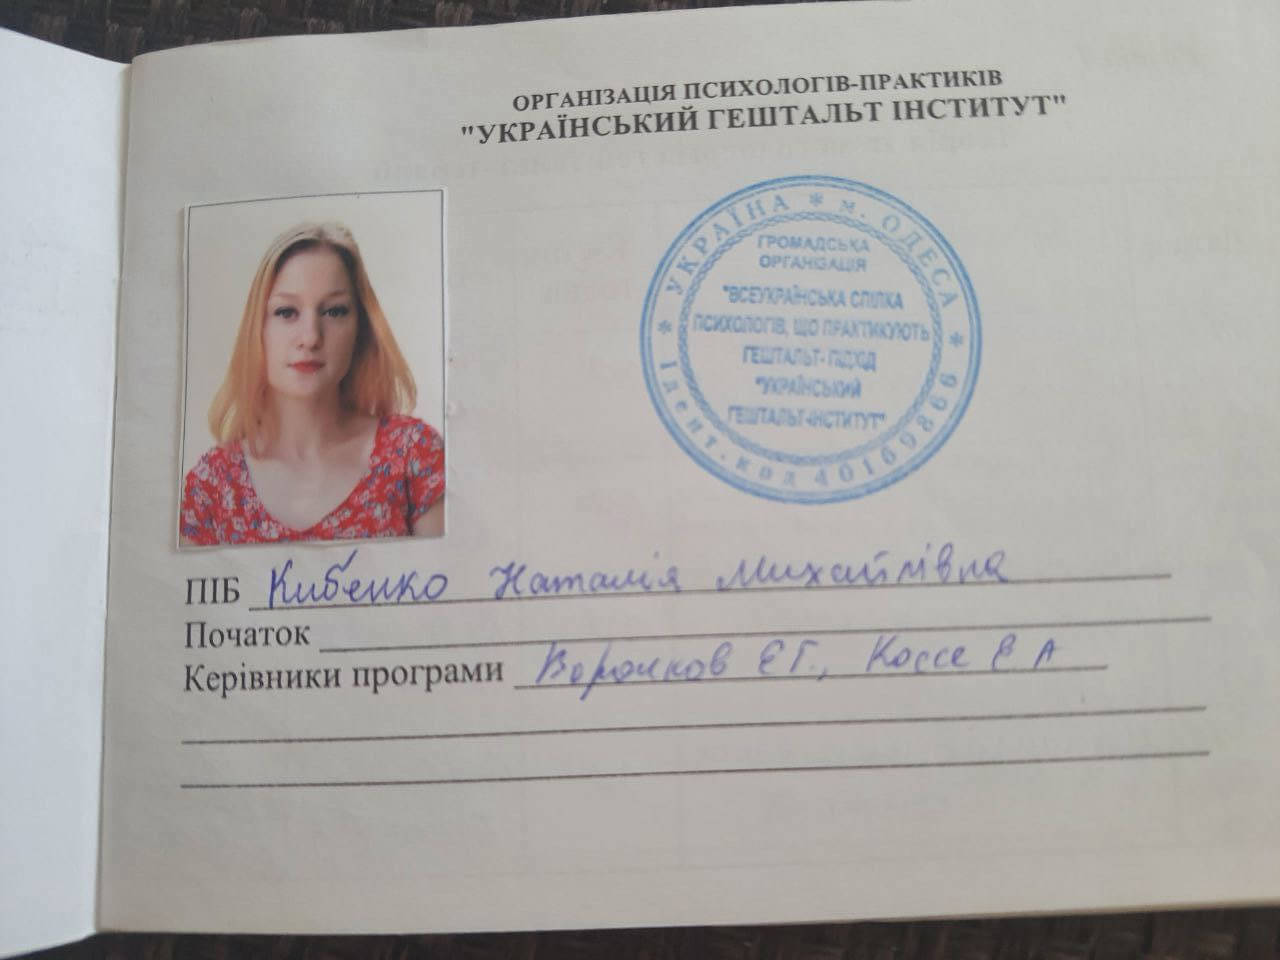 ОРГАНІЗАЦІЯ ПСИХОЛОГІВ-ПРАКТИКІВ
"УКРАЇНСЬКИЙ ГЕШТАЛЬТ ІНСТИТУТ"
* УКРАЇНА * м. ОДЕСА *
ГРОМАДСЬКА
ОРГАНІЗАЦІЯ
"ВСЕУКРАЇНСЬКА СПІЛКА
ПСИХОЛОГІВ, ЩО ПРАКТИКУЮТЬ
ГЕШТАЛЬТ-ПІДХІД
"УКРАЇНСЬКИЙ
ГЕШТАЛЬТ-ІНСТИТУТ"
Ідент. код 40169866
ПІБ Кибенко Наталія Михайлівна
Початок
Керівники програми ЄГ., Коссе Є А